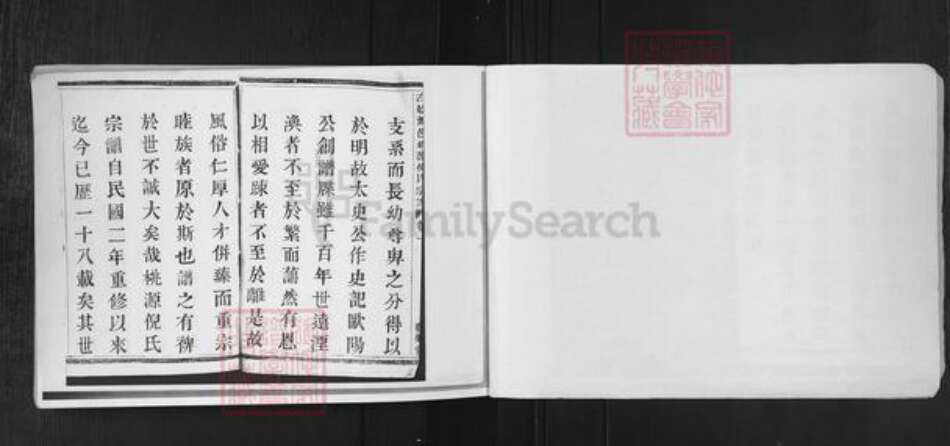 支系而長幼尊卑之分得以
於明故太史公作史記歐陽
公創譜牒雖千百年世遠湮
渙者不至於繁而蕩然有恩
以相愛疎者不至於離是故
風俗仁厚人才併臻而重宗
睦族者原於斯也譜之有裨
於世不誠大矣哉桃源倪氏
宗譜自民國二年重修以來
迄今已歷一十八載矣其世
FamilySearch